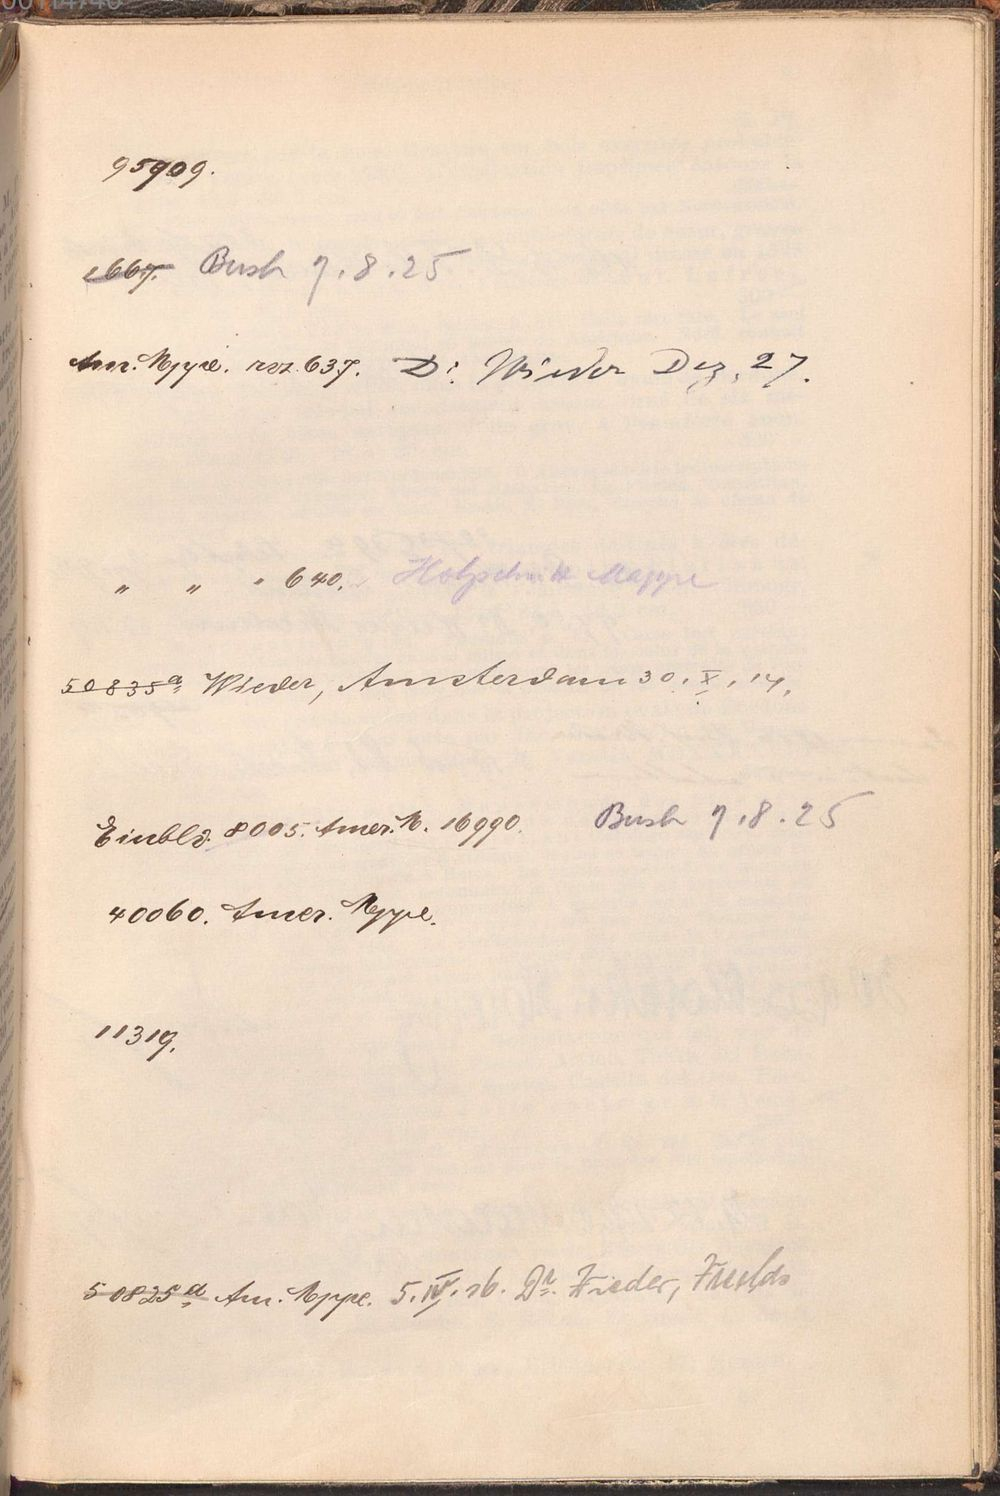 95909.
1667. Bush 7.8.25
Am. Mppe. roz. 637. Dr. Wieder Dez. 27.
" " " 640. Holzschnitt Mappe
50835a Wieder, Amsterdam 30. X. 14.
Einbld. 8005. Amer. M. 16990. Bush 7.8.25
40060. Amer. Mppe.
11319.
50825a Am. Mppe. 5. IV. 26. Dr. Frieder, Fulda